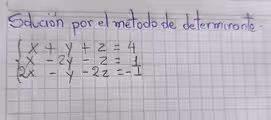 Solución por el método de determinante.
x + y + z = 4
x - 2y - z = 1
2x - y - 2z = -1